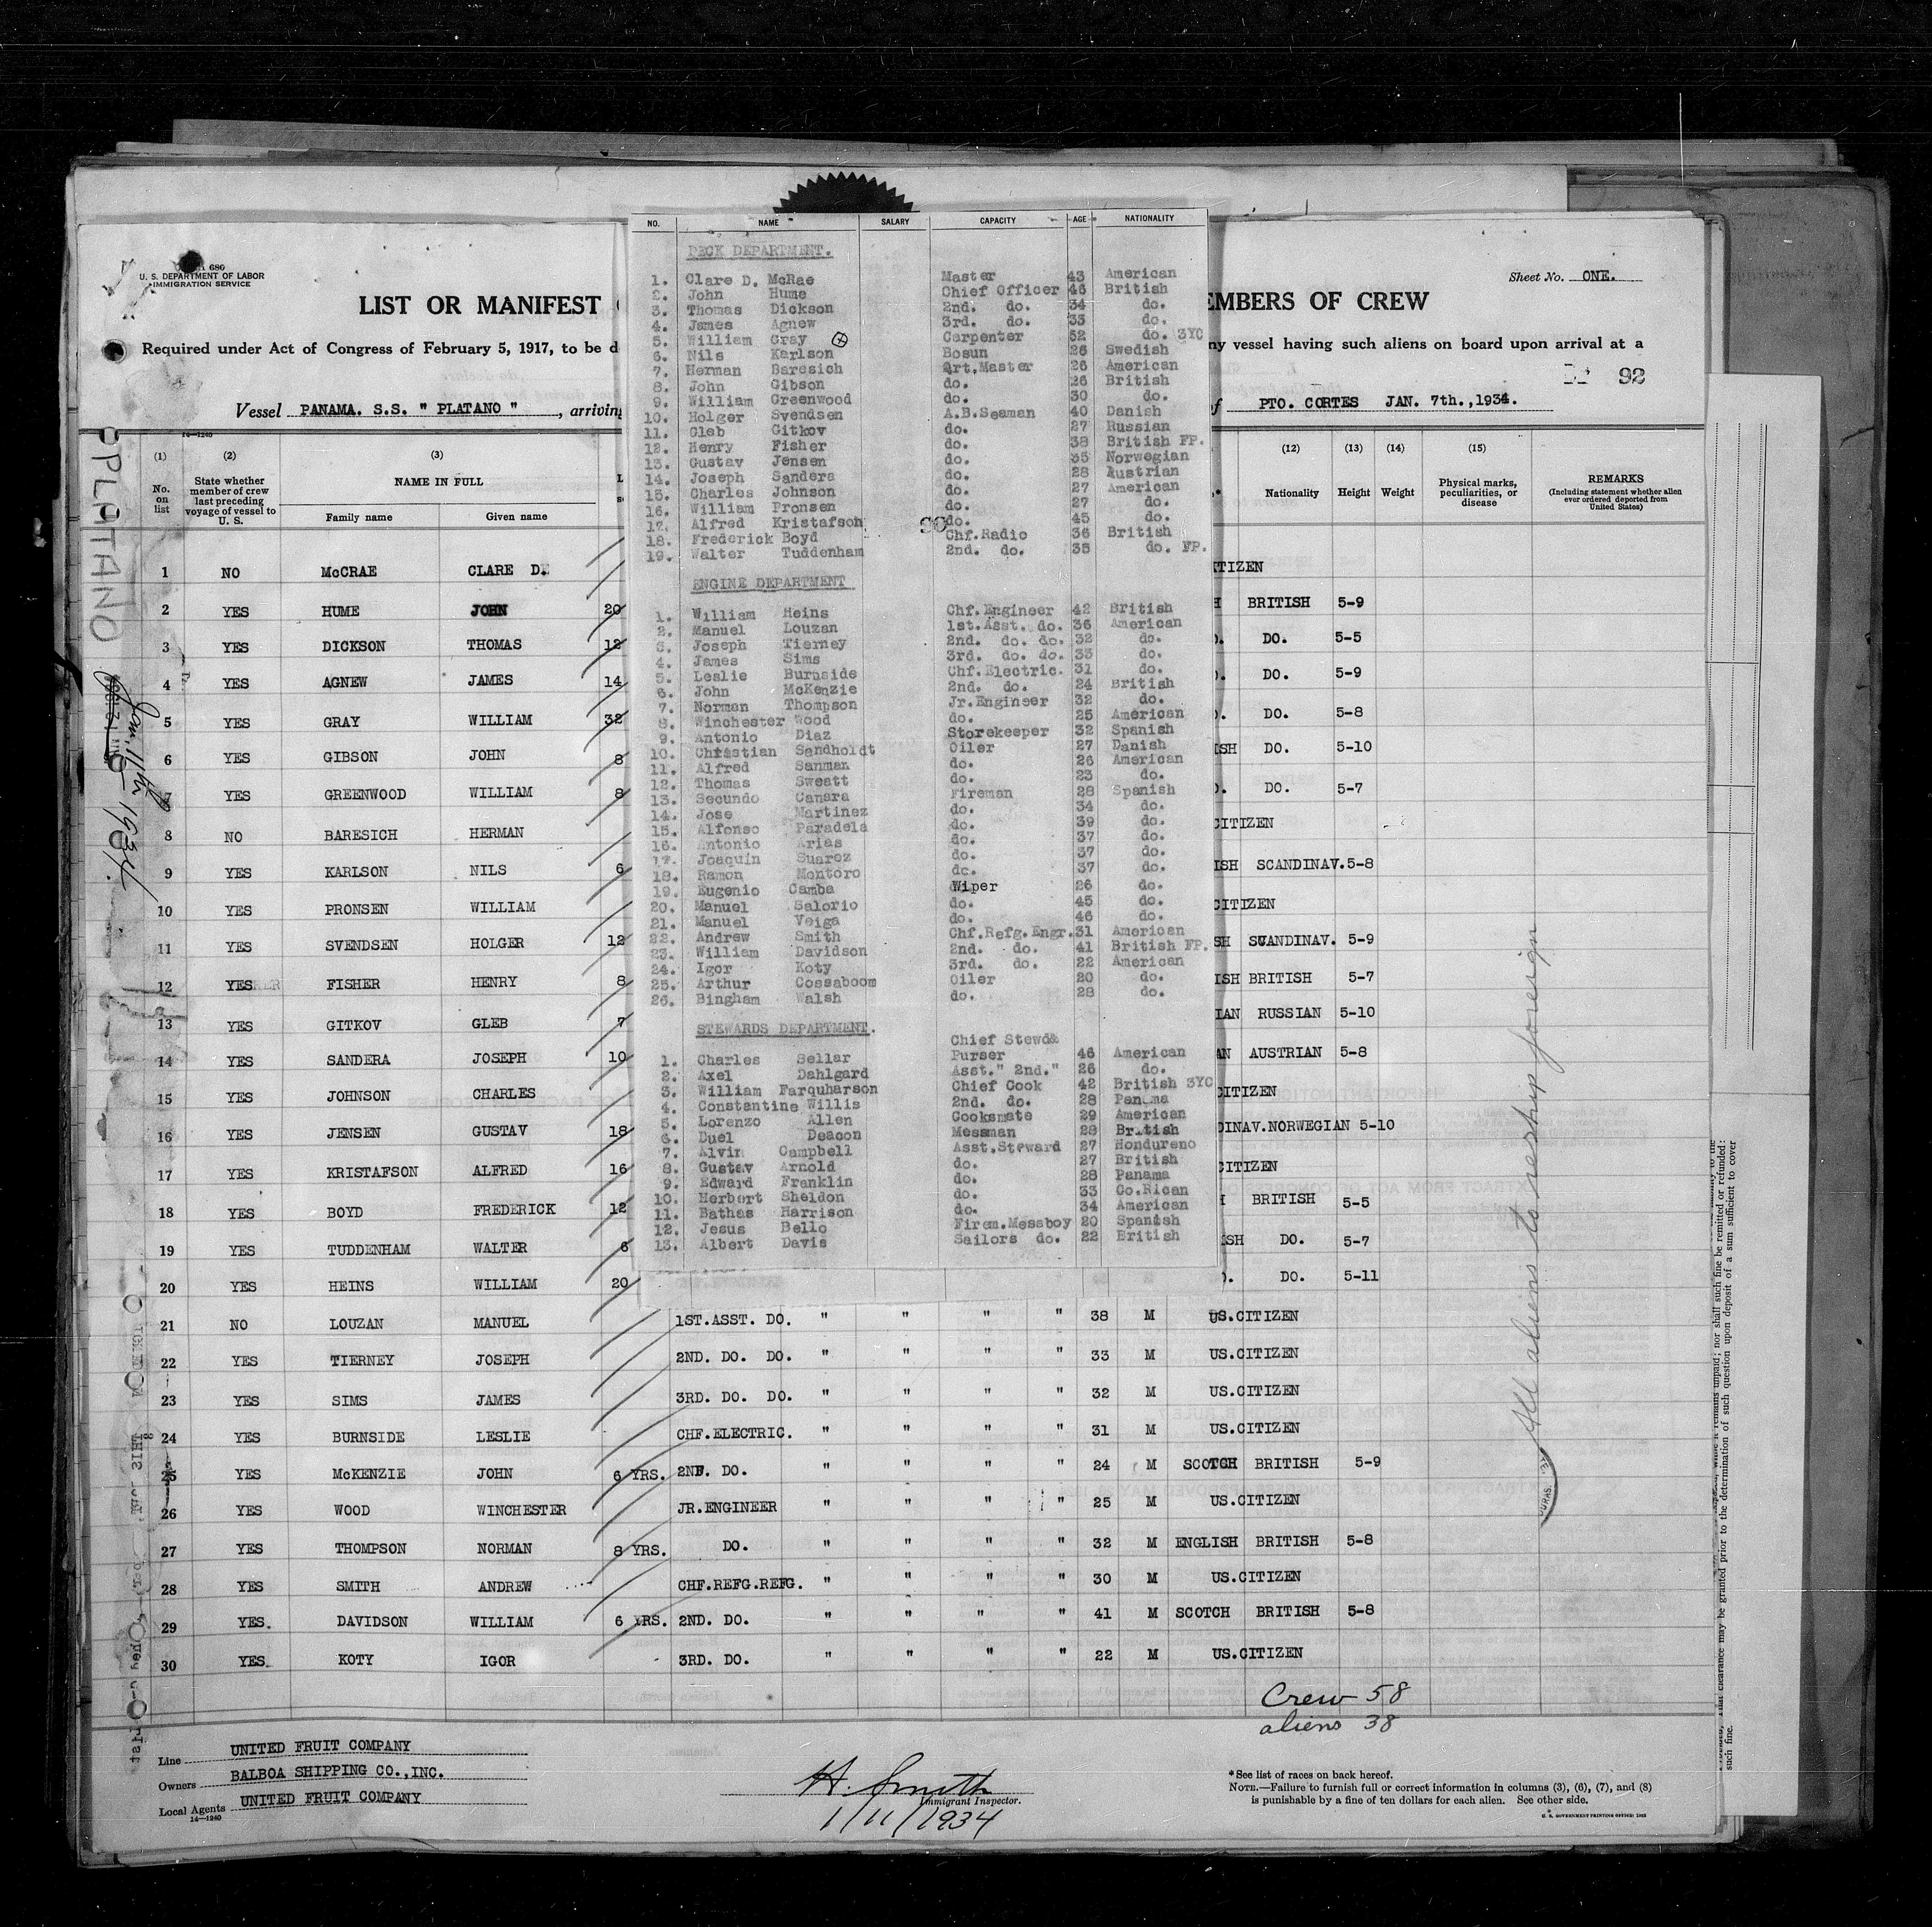 NO. NAME SALARY CAPACITY AGE NATIONALITY
DECK DEPARTMENT.
1. Clare D. McRae Master 43 American
2. John Hume Chief Officer 46 British
3. Thomas Dickson 2nd. do. 34 do.
4. James Agnew 3rd. do. 33 do.
5. William Gray Carpenter 52 do. 3YC
6. Nils Karlson Bosun 26 Swedish
7. Herman Baresich Qrt.Master 26 American
8. John Gibson do. 26 British
9. William Greenwood do. 30 do.
10. Holger Svendsen A.B.Seaman 40 Danish
11. Gleb Gitkov do. 27 Russian
12. Henry Fisher do. 38 British FP.
13. Gustav Jensen do. 35 Norwegian
14. Joseph Sandera do. 28 Austrian
15. Charles Johnson do. 27 American
16. William Pronsen do. 27 do.
17. Alfred Kristafson do. 45 do.
18. Frederick Boyd Chf.Radio 36 British
19. Walter Tuddenham 2nd. do. 35 do. FP.
ENGINE DEPARTMENT
1. William Heins Chf.Engineer 42 British
2. Manuel Louzan 1st.Asst. do. 36 American
3. Joseph Tierney 2nd. do. do. 32 do.
4. James Sims 3rd. do. do. 33 do.
5. Leslie Burnside Chf.Electric. 31 do.
6. John McKenzie 2nd. do. 24 British
7. Norman Thompson Jr.Engineer 32 do.
8. Winchester Wood do. 25 American
9. Antonio Diaz Storekeeper 32 Spanish
10. Christian Sandholdt Oiler 27 Danish
11. Alfred Sanman do. 26 American
12. Thomas Sweatt do. 23 do.
13. Secundo Canara Fireman 28 Spanish
14. Jose Martinez do. 34 do.
15. Alfonso Paradela do. 39 do.
16. Antonio Arias do. 37 do.
17. Joaquin Suarez do. 37 do.
18. Ramon Montoro do. 37 do.
19. Eugenio Camba Wiper 26 do.
20. Manuel Salorio do. 45 do.
21. Manuel Veiga do. 46 do.
22. Andrew Smith Chf.Refg.Engr. 31 American
23. William Davidson 2nd. do. 41 British FP.
24. Igor Koty 3rd. do. 22 American
25. Arthur Cossaboom Oiler 20 do.
26. Bingham Walsh do. 28 do.
STEWARDS DEPARTMENT.
Chief Stewd&
1. Charles Sellar Purser 46 American
2. Axel Dahlgard Asst." 2nd." 26 do.
3. William Farquharson Chief Cook 42 British 3YC
4. Constantine Willis 2nd. do. 28 Panama
5. Lorenzo Allen Cooksmate 29 American
6. Duel Deacon Messman 28 British
7. Alvin Campbell Asst.Steward 27 Hondureno
8. Gustav Arnold do. 27 British
9. Edward Franklin do. 28 Panama
10. Herbert Sheldon do. 33 Co.Rican
11. Bathas Harrison do. 34 American
12. Jesus Bello Firem.Messboy 20 Spanish
13. Albert Davis Sailors do. 22 British
680
U. S. DEPARTMENT OF LABOR
IMMIGRATION SERVICE
Sheet No. ONE.
LIST OR MANIFEST EMBERS OF CREW
Required under Act of Congress of February 5, 1917, to be d ny vessel having such aliens on board upon arrival at a
92
Vessel PANAMA. S.S. " PLATANO ", arriving PTO. CORTES JAN. 7th.,1934.
14—1240
(1) (2) (3) (12) (13) (14) (15)
No. on list
State whether member of crew last preceding voyage of vessel to U. S.
NAME IN FULL
Family name Given name
Nationality Height Weight
Physical marks, peculiarities, or disease
REMARKS
(Including statement whether alien ever ordered deported from United States)
1 NO McCRAE CLARE D. CITIZEN
2 YES HUME JOHN 20 BRITISH 5-9
3 YES DICKSON THOMAS 12 DO. 5-5
4 YES AGNEW JAMES 14 DO. 5-9
5 YES GRAY WILLIAM 32 DO. 5-8
6 YES GIBSON JOHN 8 ISH DO. 5-10
7 YES GREENWOOD WILLIAM 8 DO. 5-7
8 NO BARESICH HERMAN CITIZEN
9 YES KARLSON NILS 6 ISH SCANDINAV. 5-8
10 YES PRONSEN WILLIAM CITIZEN
11 YES SVENDSEN HOLGER 12 SH SCANDINAV. 5-9
12 YES FISHER HENRY 8 ISH BRITISH 5-7
13 YES GITKOV GLEB 7 IAN RUSSIAN 5-10
14 YES SANDERA JOSEPH 10 AN AUSTRIAN 5-8
15 YES JOHNSON CHARLES CITIZEN
16 YES JENSEN GUSTAV 18 DINAV. NORWEGIAN 5-10
17 YES KRISTAFSON ALFRED 16 CITIZEN
18 YES BOYD FREDERICK 12 BRITISH 5-5
19 YES TUDDENHAM WALTER 6 ISH DO. 5-7
20 YES HEINS WILLIAM 20 DO. 5-11
21 NO LOUZAN MANUEL 1ST.ASST. DO. " " " " 38 M US.CITIZEN
22 YES TIERNEY JOSEPH 2ND. DO. DO. " " " " 33 M US.CITIZEN
23 YES SIMS JAMES 3RD. DO. DO. " " " " 32 M US.CITIZEN
24 YES BURNSIDE LESLIE CHF.ELECTRIC. " " " " 31 M US.CITIZEN
25 YES McKENZIE JOHN 6 YRS. 2ND. DO. " " " " 24 M SCOTCH BRITISH 5-9
26 YES WOOD WINCHESTER JR.ENGINEER " " " " 25 M US.CITIZEN
27 YES THOMPSON NORMAN 8 YRS. DO. " " " " 32 M ENGLISH BRITISH 5-8
28 YES SMITH ANDREW CHF.REFG.REFG. " " " " 30 M US.CITIZEN
29 YES. DAVIDSON WILLIAM 6 YRS. 2ND. DO. " " " " 41 M SCOTCH BRITISH 5-8
30 YES. KOTY IGOR 3RD. DO. " " " " 22 M US.CITIZEN
PLATANO
Jan. 11th 1934
All aliens to reship foreign
Crew 58
aliens 38
Line UNITED FRUIT COMPANY
Owners BALBOA SHIPPING CO.,INC.
Local Agents UNITED FRUIT COMPANY
14—1240
H. Smith
Immigrant Inspector.
1/11/1934
*See list of races on back hereof.
NOTE.—Failure to furnish full or correct information in columns (3), (6), (7), and (8)
is punishable by a fine of ten dollars for each alien. See other side.
U. S. GOVERNMENT PRINTING OFFICE: 1932